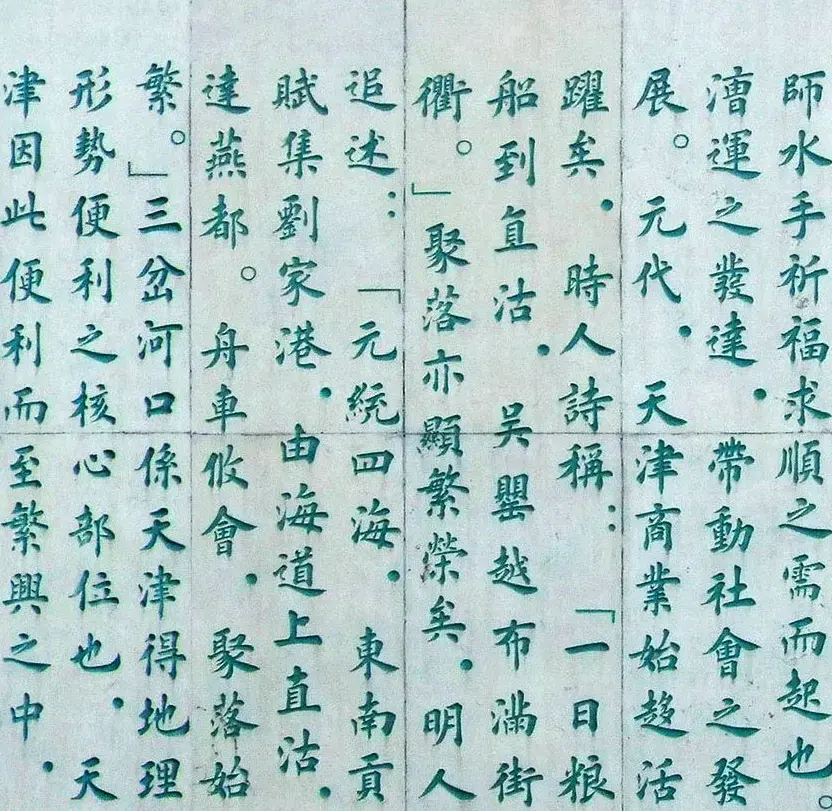 師水手祈福求順之需而起也。
漕運之發達，帶動社會之發
展。元代，天津商業始趨活
躍矣，時人詩稱：「一日粮
船到直沽，吳罌越布滿街
衢。」聚落亦顯繁榮矣，明人
追述：「元統四海，東南貢
賦集劉家港，由海道上直沽，
達燕都。舟車攸會，聚落始
繁。」三岔河口係天津得地理
形勢便利之核心部位也，天
津因此便利而至繁興之中，